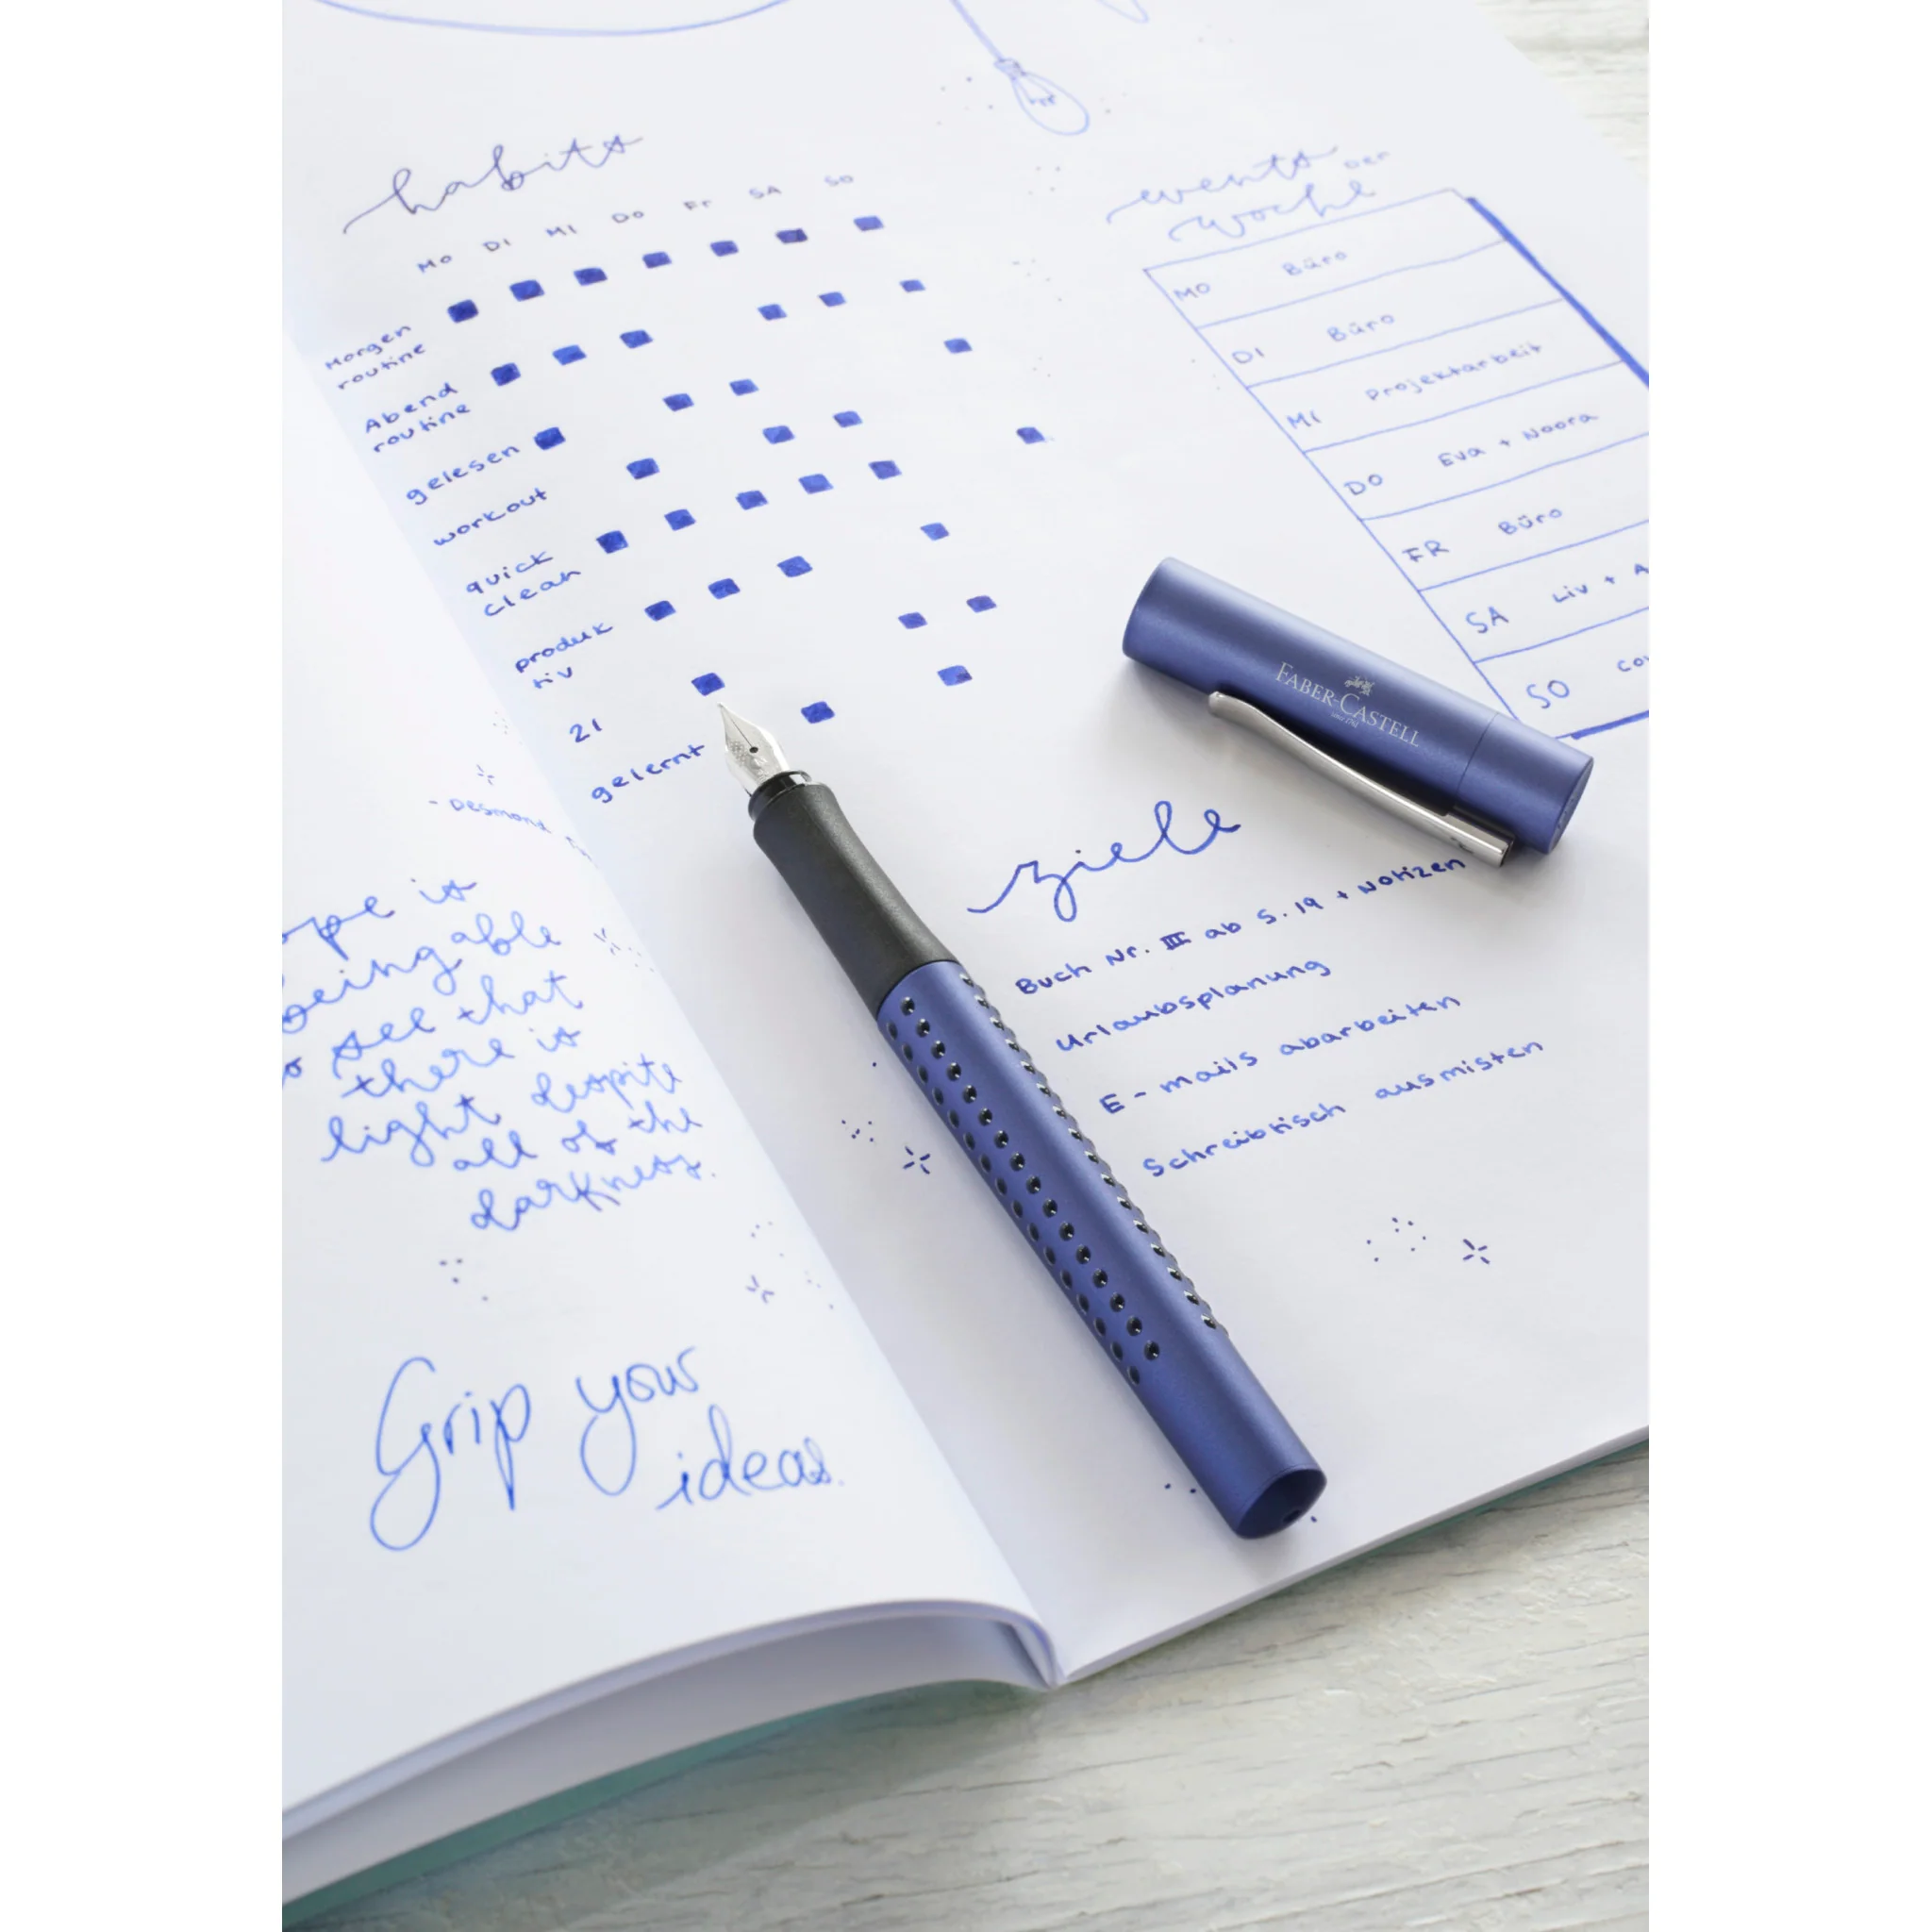 habits
MO DI MI DO Fr SA SO
Morgen
routine
Abend
routine
gelesen
workout
quick
clean
produk
tiv
21
gelernt
events DER
woche
MO Büro
DI Büro
MI Projektarbeit
DO Eva + Noora
FR Büro
SA Liv + A
SO
FABER-CASTELL
ziele
Buch Nr. III ab S. 19 + Notizen
Urlaubsplanung
E-mails abarbeiten
Schreibtisch ausmisten
- Desmond
ope is
being able
to see that
there is
light despite
all of the
darkness.
Grip your
ideas.